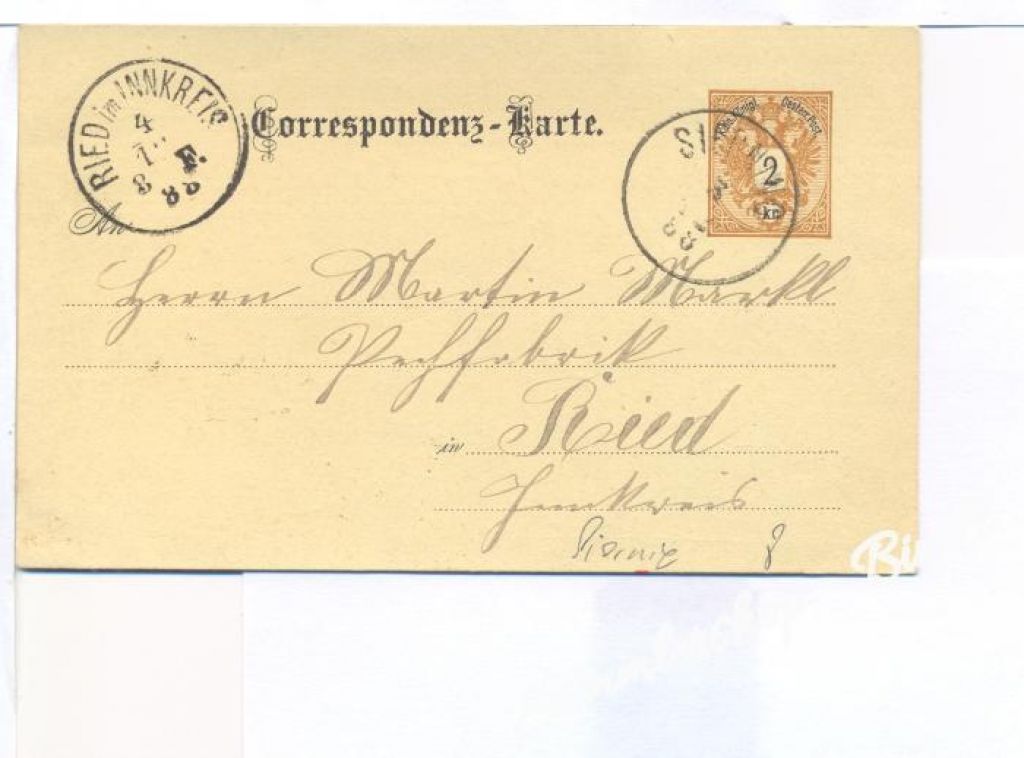 RIED im INNKREIS
4
8 88
F.
Correspondenz-Karte.
Kais. Königl. Oesterr. Post
2
kr.
88
An
Herrn Martin Markl
Pechfabrik
in Ried
Innkreis
8
Bi